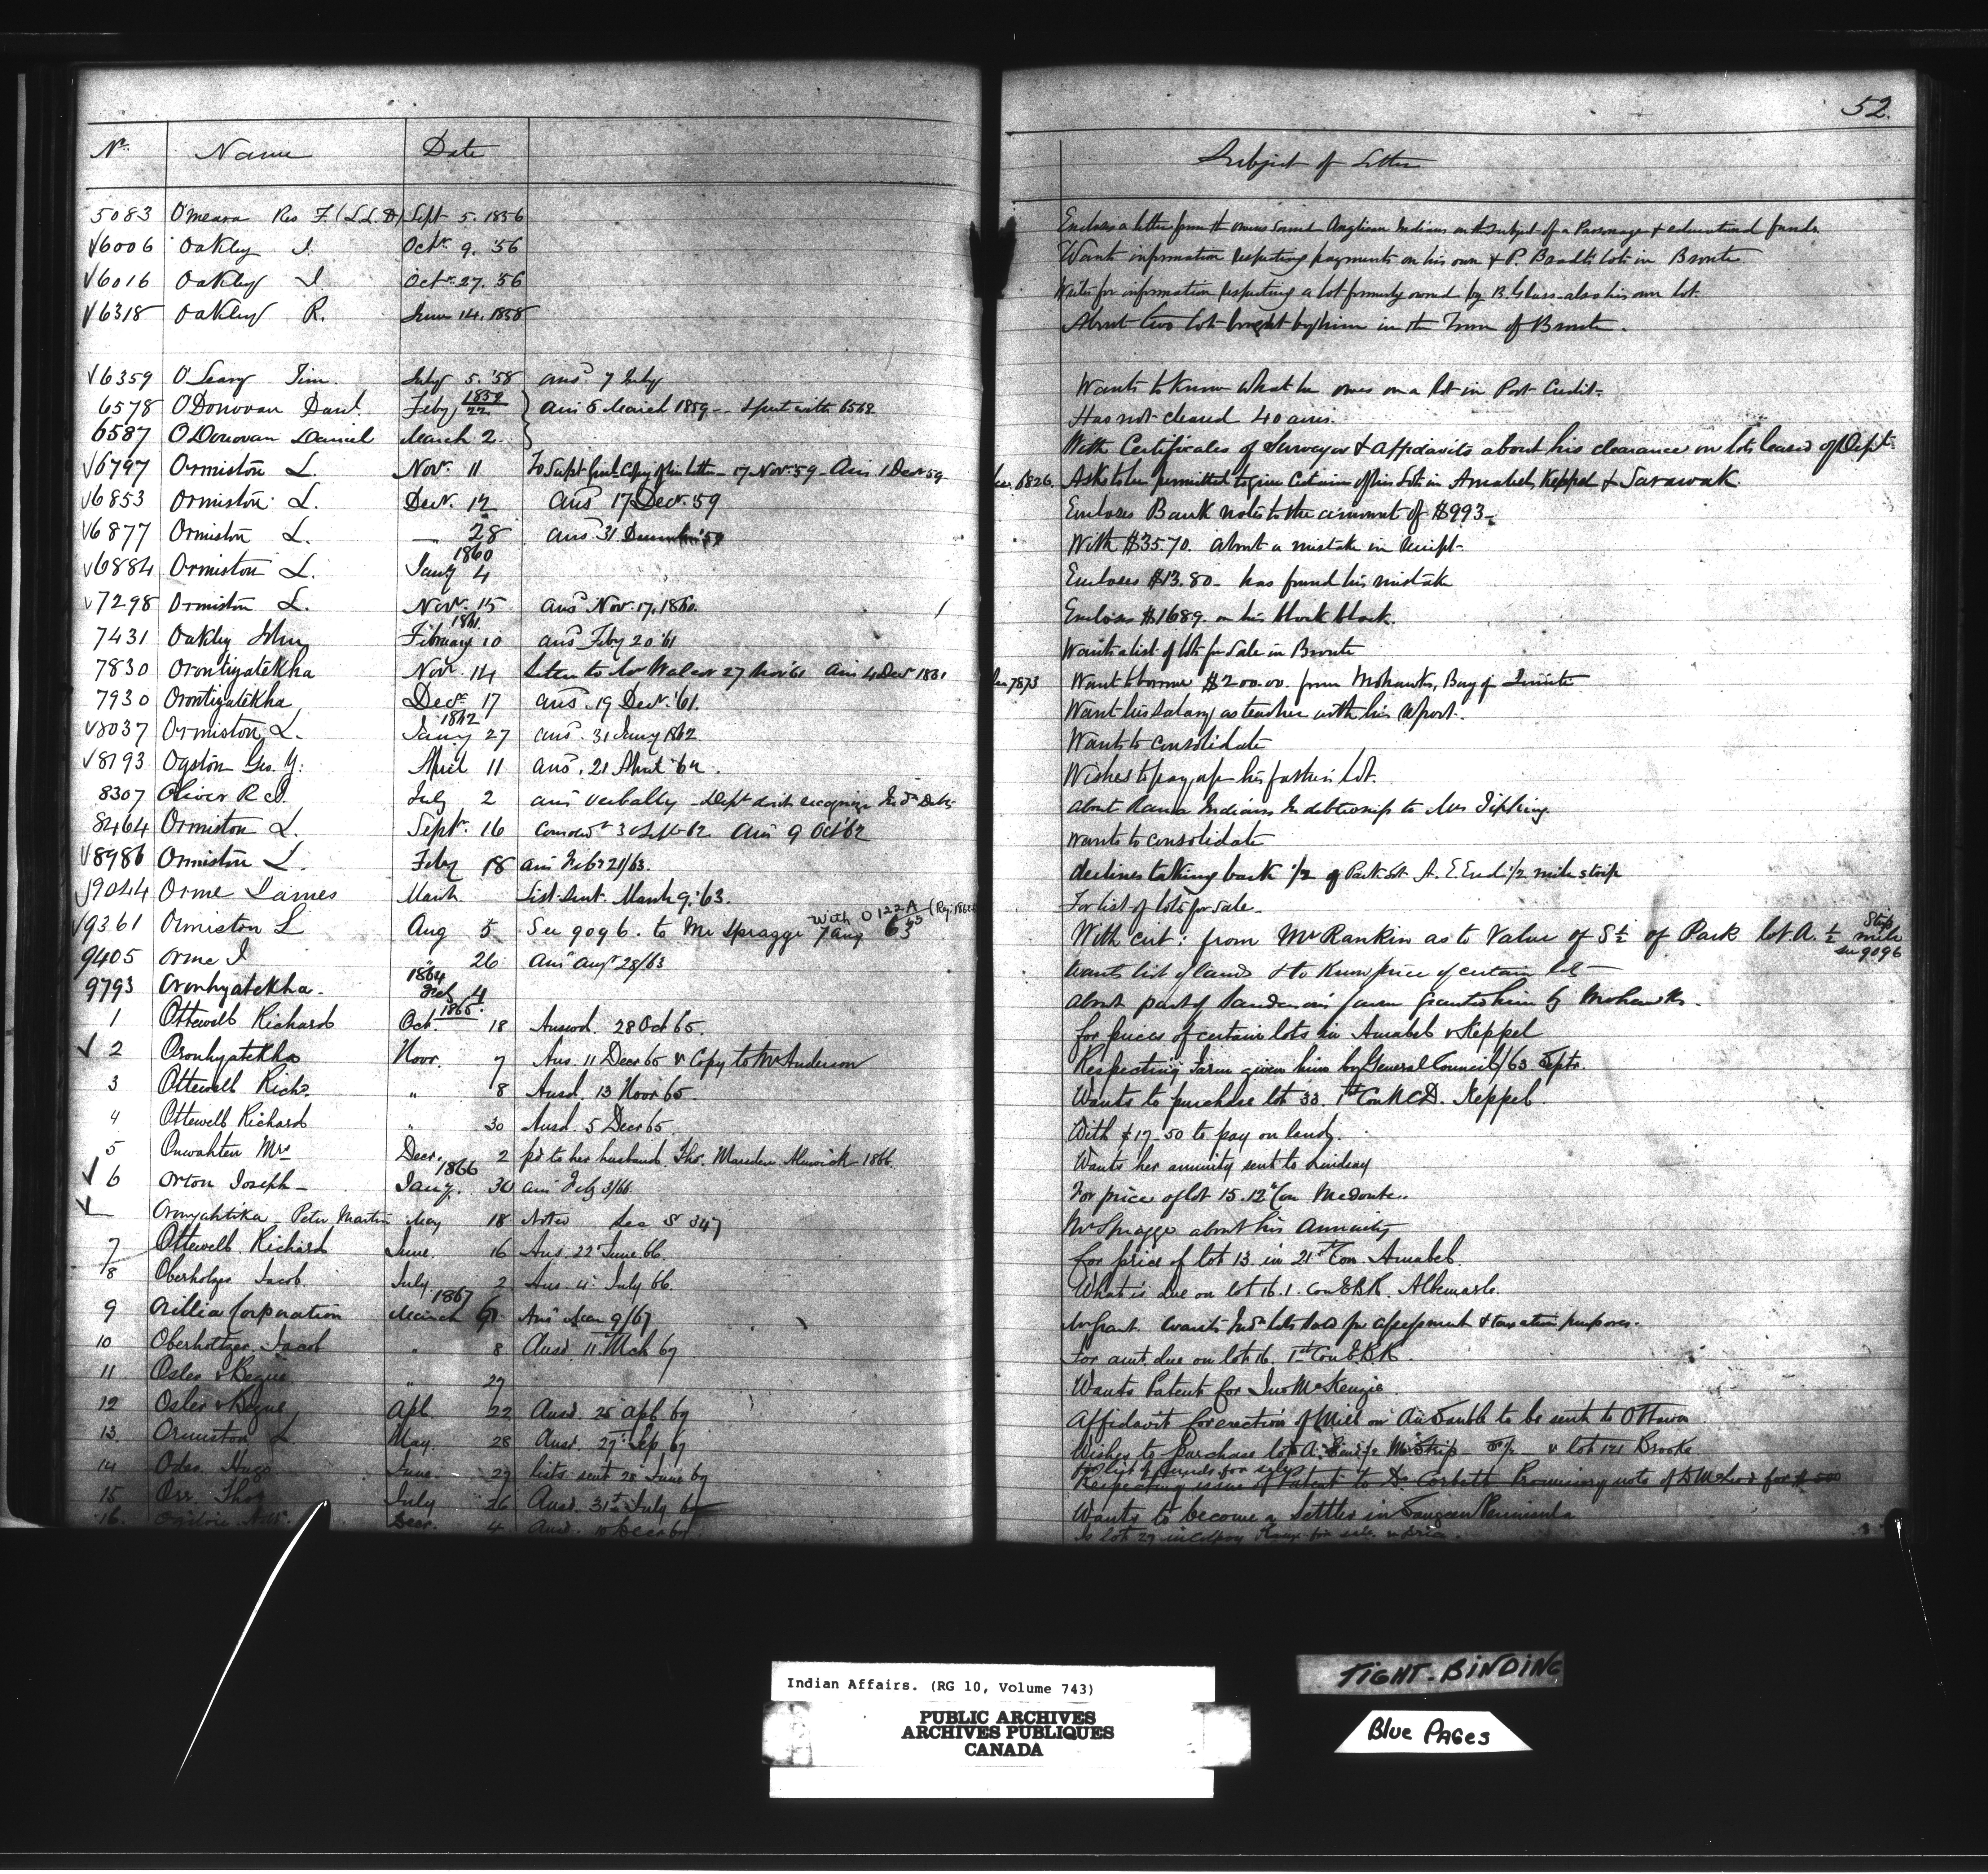 52.
No. Name Date Subject of Letter
5083 O'meara Rev F. (LL.D) Sept 5. 1856 Encloses a letter from the Owen Sound Anglican Indians on the subject of a Parsonage & educational funds.
√6006 Oakley I. Octr. 9. '56 Wants information respecting payments on his own & P. Bradt's lots in Bronte
√6016 Oakley I Octr. 27. '56 Writes for information respecting a lot formerly owned by B. Glass also his own lot.
√6318 Oakley R. June 14. 1858 About two lots bought by him in the Town of Bronte.
√6359 O'Leary Tim. July 5. '58 ansd 7 July Wants to know what he owes on a lot in Port Credit.
6578 O'Donovan Danl. Feby 1859 22 Ans 8 March 1859 - & put with 6562 Has not cleared 40 acres.
6587 O'Donovan Daniel March 2. With Certificates of Surveyor & Affidavits about his clearance on lots leased of Dept
√6797 Ormiston L. Novr. 11 To Supt Genl. Copy of his letter - 17 Nov. 59 - Ans 1 Decr 59 6826. Asks to be permitted to give Certain of his Lots in Amabel, Keppel & Sarawak.
√6853 Ormiston L. Decr. 12 ansd 17 Decr. 59 Encloses Bank notes to the amount of $993-
√6877 Ormiston L. — 28 ansd 31 December '59 With $35.70. about a mistake in receipt-
√6884 Ormiston L. 1860 Jany 4 Encloses $13.80 - has found his mistake
√7298 Ormiston L. Novr. 15 ansd Nov. 17, 1860. Encloses $1689. on his block block.
7431 Oakley John 1861. February 10 ansd Feby 20 '61 Wants a list of lots for Sale in Bronte
7830 Orontiyatekha Novr. 14 Letter to 27 Nov '61 Ans 4 Decr 1861 7873 Want to borrow $200.00. from Mohawks, Bay of Quinte
7930 Orontiyatekha Decr. 17 ansd. 19 Decr. '61. Want his Salary as teacher with his report.
√8037 Ormiston L. 1862 Jany 27 ansd. 31 Jany 1862. Wants to consolidate
√8193 Ogston Geo. Y. April 11 ansd. 21 April '62. Wishes to pay up his father's lot.
8307 Oliver R I. July 2 ansd verbally - Dept dont recognize Indn Debts about Rama Indians Indebtedness to Mrs Tipping
8464 Ormiston L. Septr. 16 Consold 30 Sept 62 Ans 9 Oct 62 Wants to consolidate
√8986 Ormiston L. Feby 18 ans Feby 21/63. declines taking back 1/2 of Park lot A. E End 1/2 mile strip
√9044 Orme James March List sent. March 9. '63. For list of lots for sale-
√9361 Ormiston L Aug 5 See 9096. to Mr Spragge 7 aug 63 With O122A (Reg: 186 With cert: from Mr Rankin as to Value of S½ of Park lot A. ½ mile Strip see 9096
9405 Orme I " 26 Ans Augt 28/63 Wants list of lands & to Know price of certain lot-
9793 Oronhyatekha. 1864 Feb 4 about part of farm granted him by Mohawks.
1 Ottewell Richard 1865. Oct. 18 Answd. 28 Oct 65. For prices of certain lots in Amabel & Keppel
√ 2 Oronhyatekha Novr. 7 Ans. 11 Decr 65 & Copy to Mr Anderson Respecting Farm given him by General Council/63 Septr.
3 Ottewell Richd. " 8 Ansd. 13 Novr 65. Wants to purchase lot 33. 1st Con N C D. Keppel.
4 Ottewell Richard " 30 Ansd. 5 Decr 65. With $17.50 to pay on land.
5 Onwahten Mrs Decr. 2 pd to her husband. Thos. Marsden Alnwick 1866. Wants her annuity sent to Lindsay
√ 6 Orton Joseph- 1866 Jany. 30 ans Feby 3/66. For price of lot 15. 12th Con Medonte..
√ Oronyahtika Peter Martin May 18 Noted See S 347 Mr Spragge about his Annuity
7 Ottewell Richard June. 16 Ans. 22 June 66. For price of lot 13. in 21st Con Amabel.
8 Oberholtzer Jacob. July 2 Ans. 4 July 66. What is due on lot 16. 1. Con E B R. Albemarle.
9 Orillia Corporation 1867 March 6 Ans Mar 9/67 Mr Grant. Wants Indn lots sold for assessment & taxation purposes.
10 Oberholtzer Jacob " 8 Ansd. 11 Mch 67 For amt. due on lot 16. 1st Con E B R.
11 Osler & Begue " 27 Wants Patent for Jno McKenzie
12 Osler & Begue Apl. 22 Ansd. 25 Apl 67 Affidavit for erection of Mill on Au Sauble to be sent to Ottawa
13. Ormiston L May. 28 Ansd. 27 Sep 67 Wishes to purchase lot A. 1/2 M Strip & lot 121 Brooke
14 Hugo June. 27 lists sent 28 June 67 For list of lands for sale
Respecting issue of Patent to D. Corbett Promissory note of D McLeod for $500
15 Orr Thos July 26 Ansd. 31st July 67 Wants to become a Settler in Saugeen Peninsula
16. Ogilvie Decr. 4 Ansd. 10 Decr 67. Is lot 27 in Colpoy Range for sale. & price.
Indian Affairs. (RG 10, Volume 743)
PUBLIC ARCHIVES
ARCHIVES PUBLIQUES
CANADA
TIGHT-BINDING
Blue PAGes